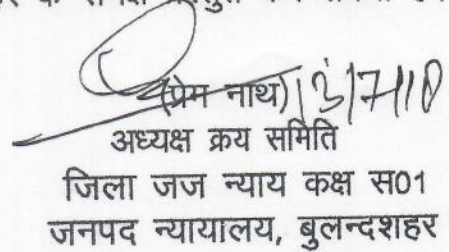 (प्रेम नाथ)
अध्यक्ष क्रय समिति
जिला जज न्याय कक्ष स01
जनपद न्यायालय, बुलन्दशहर